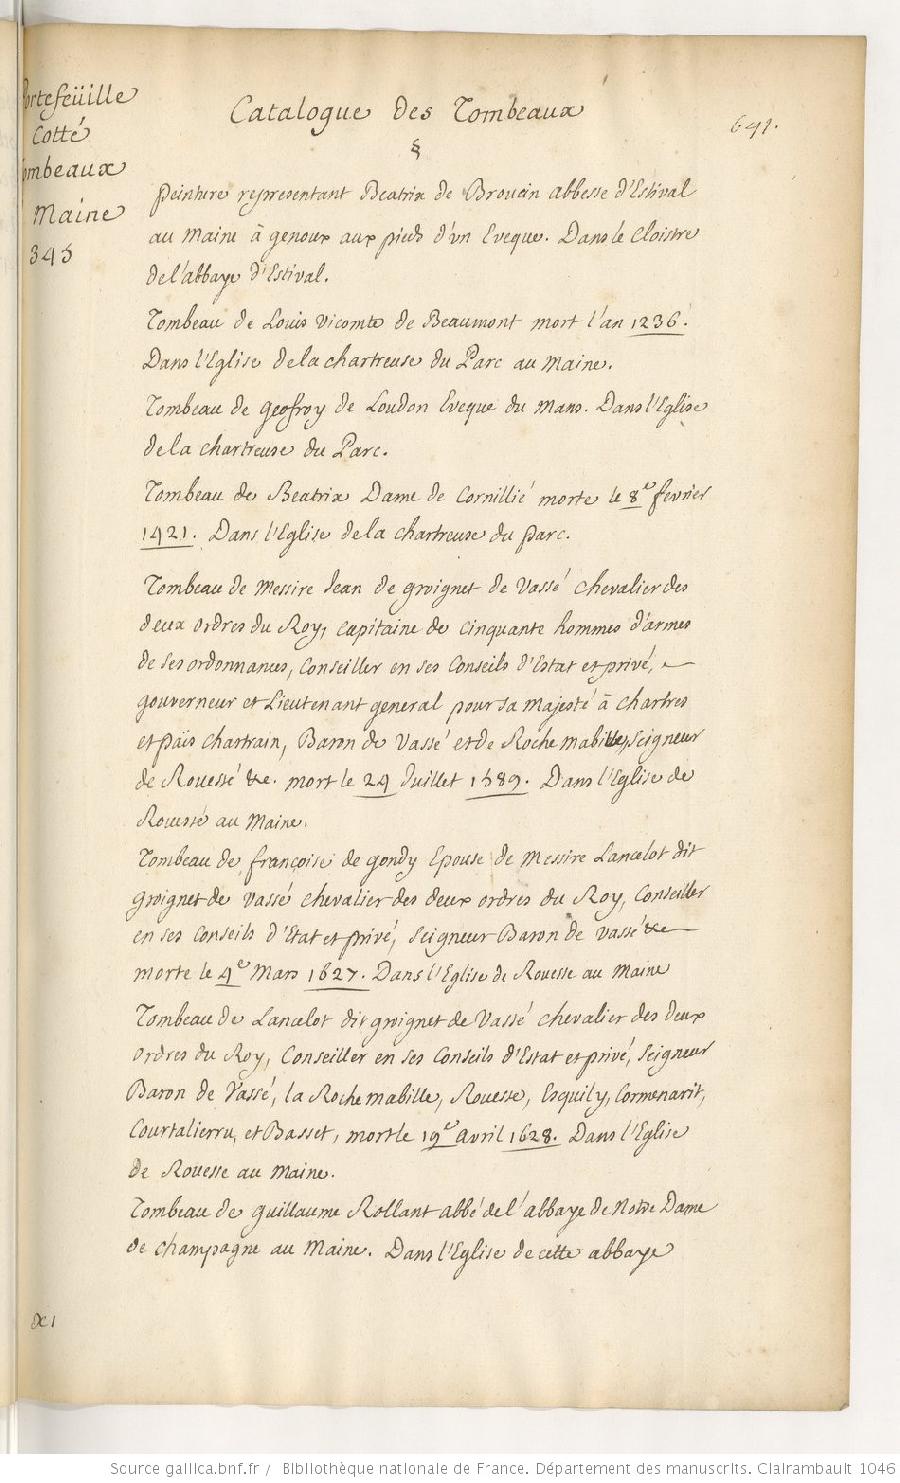 Portefeüille
Cotté
Tombeaux
Maine
345
Catalogue des Tombeaux
641.
§
peinture representant Beatrix de Broucin abbesse d'Estival
au Maine à genoux aux pieds d'un Eveque. Dans le Cloistre
de l'abbaye d'Estival.
Tombeau de Louis Vicomte de Beaumont mort l'an 1236.
Dans l'Eglise de la chartreuse du Parc au Maine.
Tombeau de geofroy de Loudon Eveque du Mans. Dans l'Eglise
de la chartreuse du Parc.
Tombeau de Beatrix Dame de Cornillié morte le 8e fevrier
1421. Dans l'Eglise de la chartreuse du parc.
Tombeau de Messire Jean de groignet de Vassé chevalier des
deux ordres du Roy, capitaine de cinquante hommes d'armes
de ses ordonnances, Conseiller en ses Conseils d'Estat et privé,
gouverneur et Lieutenant general pour sa Majesté à chartres
et païs chartrain, Baron de Vassé et de Roche mabille, seigneur
de Rouessé &c. mort le 29 Juillet 1589. Dans l'Eglise de
Rouessé au Maine.
Tombeau de françoise de gondy Epouse de Messire Lancelot dit
groignet de Vassé chevalier des deux ordres du Roy, Conseiller
en ses Conseils d'Etat et privé, seigneur Baron de Vassé &c
morte le 4e Mars 1627. Dans l'Eglise de Rouesse au Maine
Tombeau de Lancelot dit groignet de Vassé chevalier des deux
ordres du Roy, Conseiller en ses Conseils d'Estat et privé, seigneur
Baron de Vassé, la Roche mabille, Rouesse, Esquily, Cormenarit,
Courtalierru, et Basset, mort le 19e avril 1628. Dans l'Eglise
de Rouesse au Maine.
Tombeau de guillaume Rollant abbé de l'abbaye de Notre Dame
de champagne au Maine. Dans l'Eglise de cette abbaye
Source gallica.bnf.fr / Bibliothèque nationale de France. Département des manuscrits. Clairambault 1046